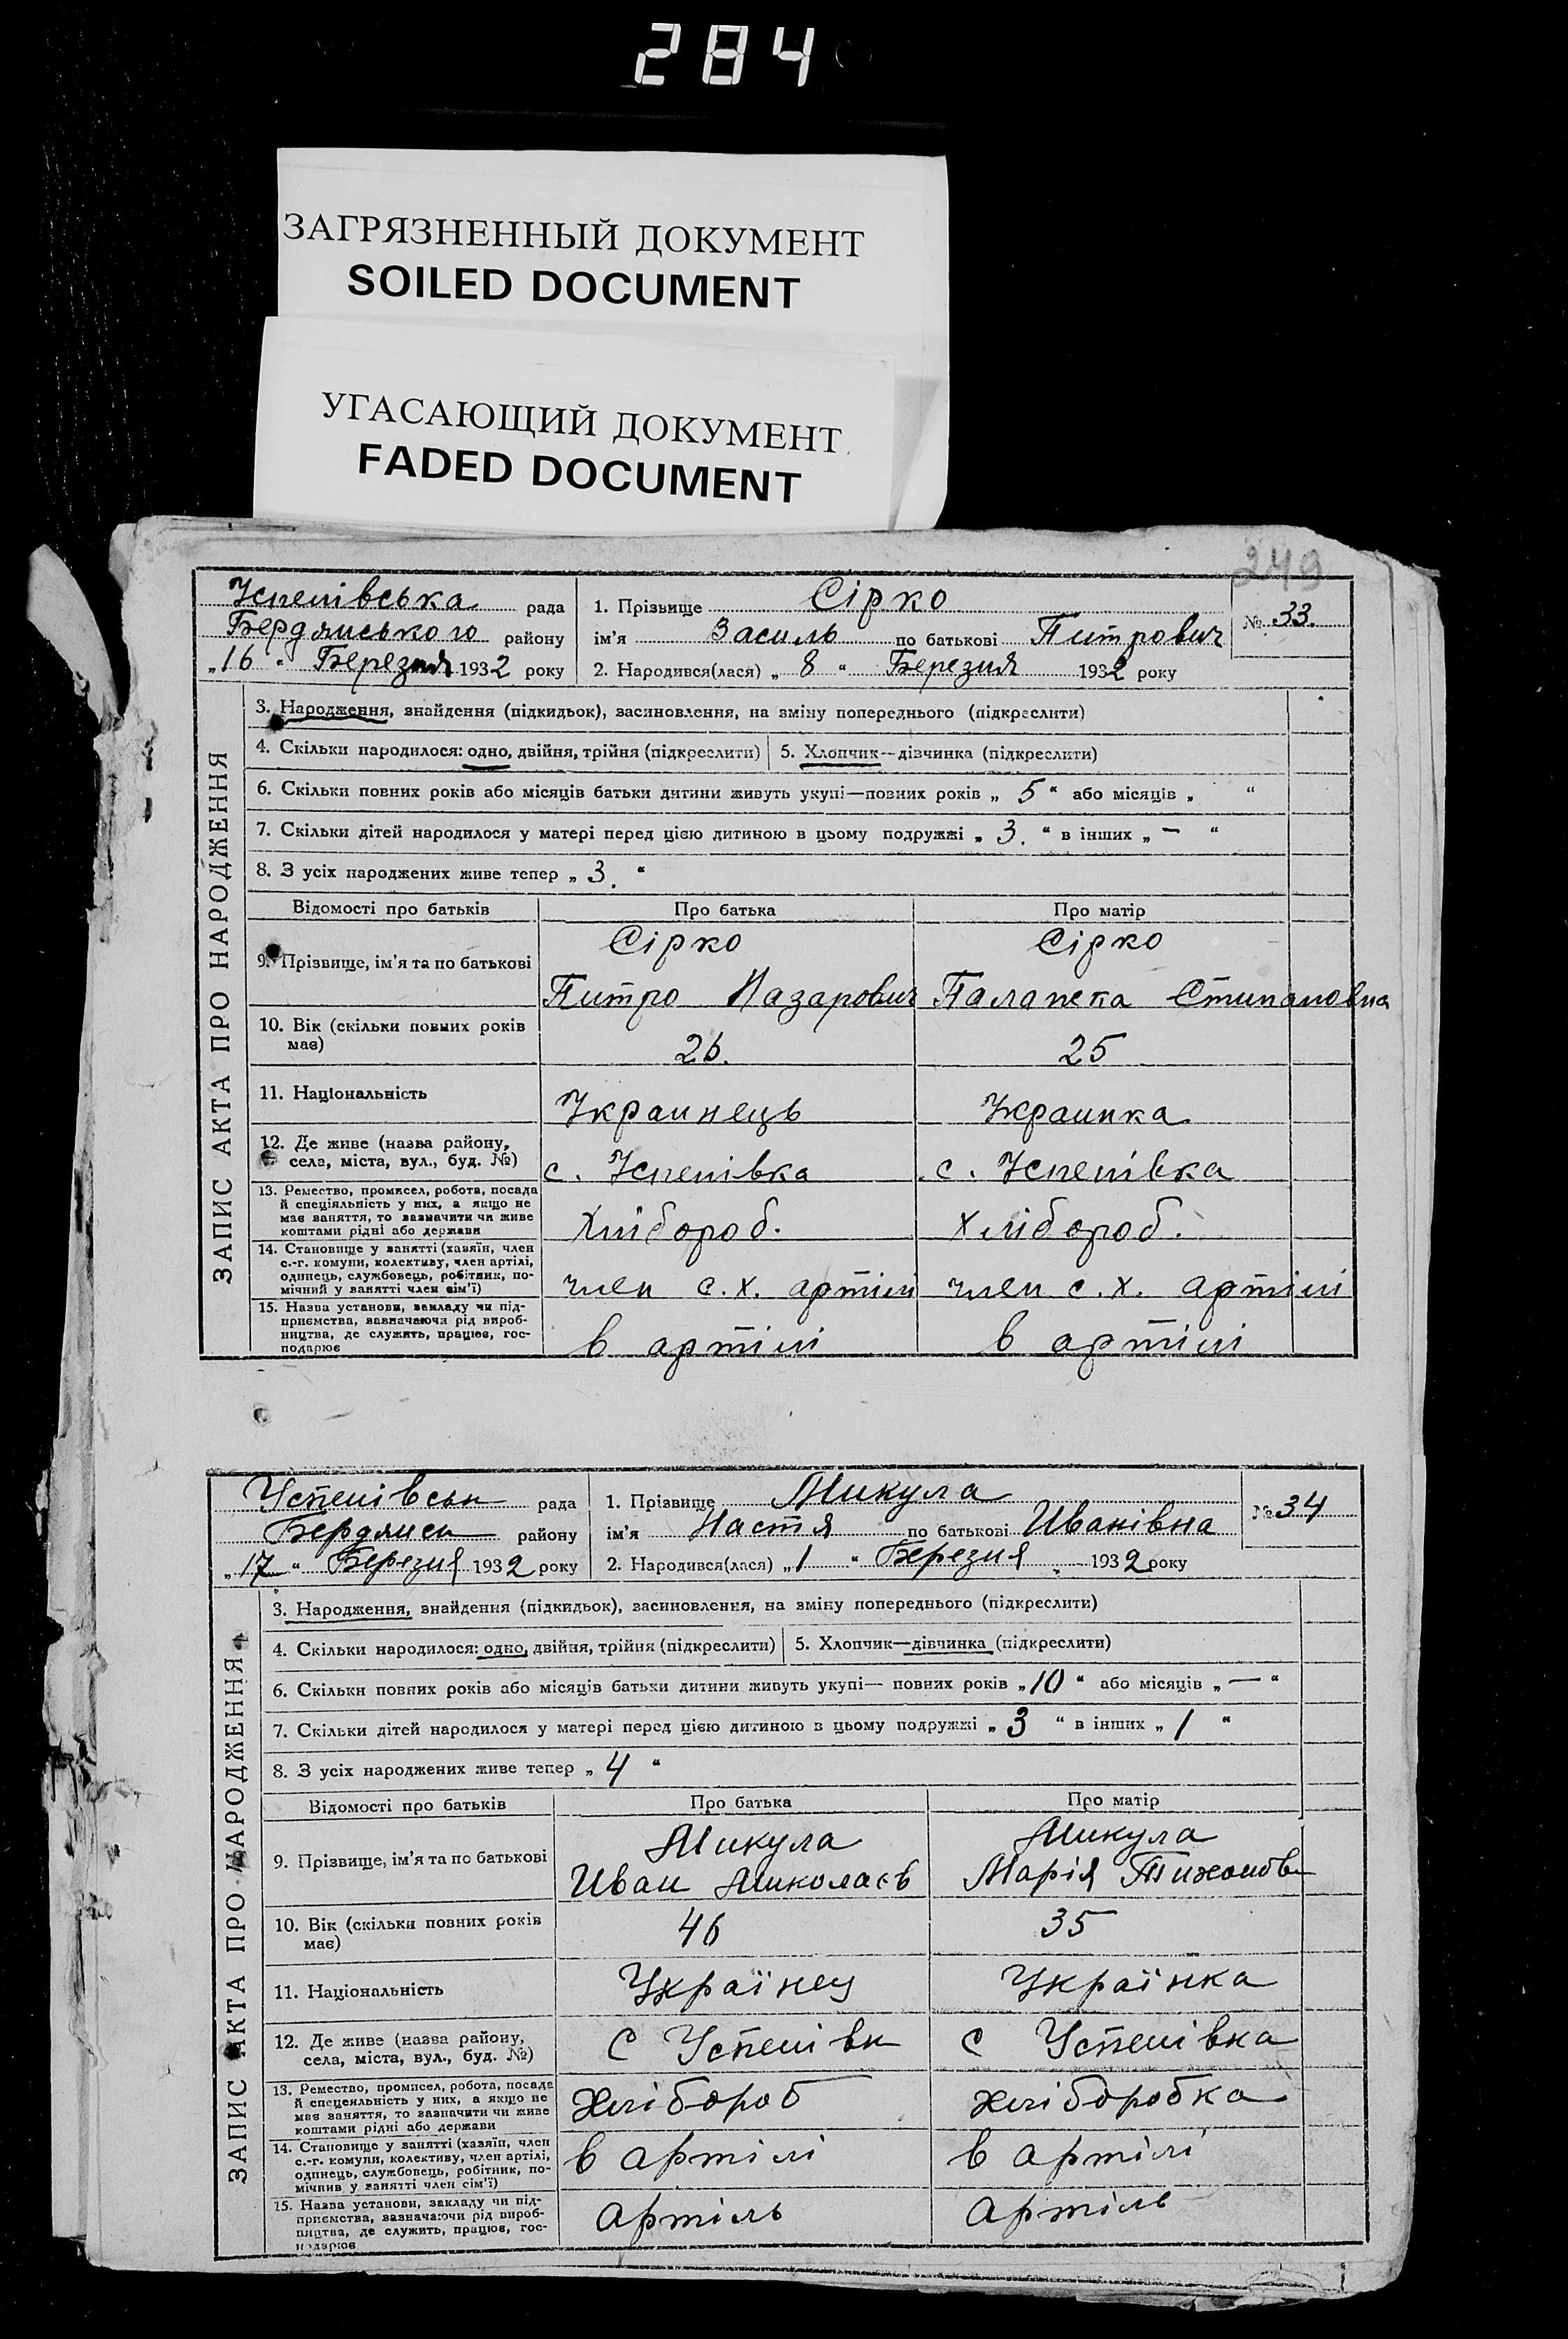 284
ЗАГРЯЗНЕННЫЙ ДОКУМЕНТ
SOILED DOCUMENT
УГАСАЮЩИЙ ДОКУМЕНТ
FADED DOCUMENT
249
Успенівська рада
Бердянського району
„16“ Березня 1932 року
1. Прізвище Сірко
ім'я Василь по батькові Питрович
2. Народився(лася) „8“ Березня 1932 року
№ 33.
ЗАПИС АКТА ПРО НАРОДЖЕННЯ
3. Народження, знайдення (підкидьок), засиновлення, на зміну попереднього (підкреслити)
4. Скільки народилося: одно, двійня, трійня (підкреслити) 5. Хлопчик—дівчинка (підкреслити)
6. Скільки повних років або місяців батьки дитини живуть укупі—повних років „5“ або місяців „ “
7. Скільки дітей народилося у матері перед цією дитиною в цьому подружжі „3.“ в інших „—“
8. З усіх народжених живе тепер „3.“
Відомості про батьків Про батька Про матір
9. Прізвище, ім'я та по батькові
Сірко Сірко
Питро Назарович Палажка Стипановна
10. Вік (скільки повних років
має)
26. 25
11. Національність Украинець Украинка
12. Де живе (назва району,
села, міста, вул., буд. №)
с. Успенівка с. Успенівка
13. Ремество, промисел, робота, посада
й спеціяльність у них, а якщо не
має заняття, то зазначити чи живе
коштами рідні або держави
Хлібороб. Хлібороб.
14. Становище у занятті (хазяїн, член
с.-г. комуни, колективу, член артілі,
одинець, службовець, робітник, по-
мічний у занятті член сім'ї)
член с.х. артілі член с.х. артілі
15. Назва установи, закладу чи під-
приємства, зазначаючи рід вироб-
ництва, де служить, працює, гос-
подарює
в артілі в артілі
Успенівськ рада
Бердянськ району
„17“ Березня 1932 року
1. Прізвище Микула
ім'я Настя по батькові Иванівна
2. Народився(лася) „1“ Березня 1932 року
№ 34
ЗАПИС АКТА ПРО НАРОДЖЕННЯ
3. Народження, знайдення (підкидьок), засиновлення, на зміну попереднього (підкреслити)
4. Скільки народилося: одно, двійня, трійня (підкреслити) 5. Хлопчик—дівчинка (підкреслити)
6. Скільки повних років або місяців батьки дитини живуть укупі— повних років „10“ або місяців „—“
7. Скільки дітей народилося у матері перед цією дитиною в цьому подружжі „3“ в інших „1“
8. З усіх народжених живе тепер „4“
Відомості про батьків Про батька Про матір
9. Прізвище, ім'я та по батькові
Микула Микула
Иван Миколаєв Марія Тихонов
10. Вік (скільки повних років
має)
46 35
11. Національність Українец Українка
12. Де живе (назва району,
села, міста, вул., буд. №)
с Успенівк с Успенівка
13. Ремество, промисел, робота, посада
й спецеяльність у них, а якщо не
має заняття, то зазначити чи живе
коштами рідні або держави
Хлібороб Хліборобка
14. Становище у занятті (хазяїн, член
с.-г. комуни, колективу, член артілі,
одинець, службовець, робітник, по-
мічнив у занятті член сім'ї)
в артілі в артілі
15. Назва установи, закладу чи під-
приємства, зазначаючи рід вироб-
ництва, де служить, працює, гос-
подарює
Артіль Артіль